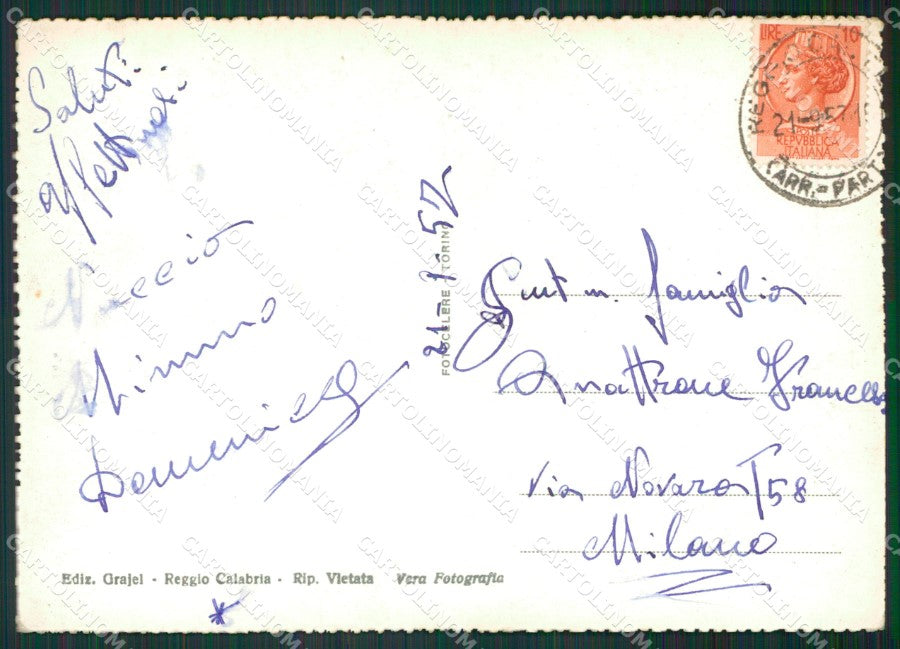 Saluti
affettuosi
Nuccio
Mimmo
Domenico
21-9-57
FOTOCELERE - TORINO
LIRE 10
REPVBBLICA
ITALIANA
21-9-57
ARR.-PART
Gent.m. famiglia
Quattrone Francesco
Via Novara 58
Milano
Ediz. Grajel - Reggio Calabria - Rip. Vietata Vera Fotografia
CARTOLINOMANIA